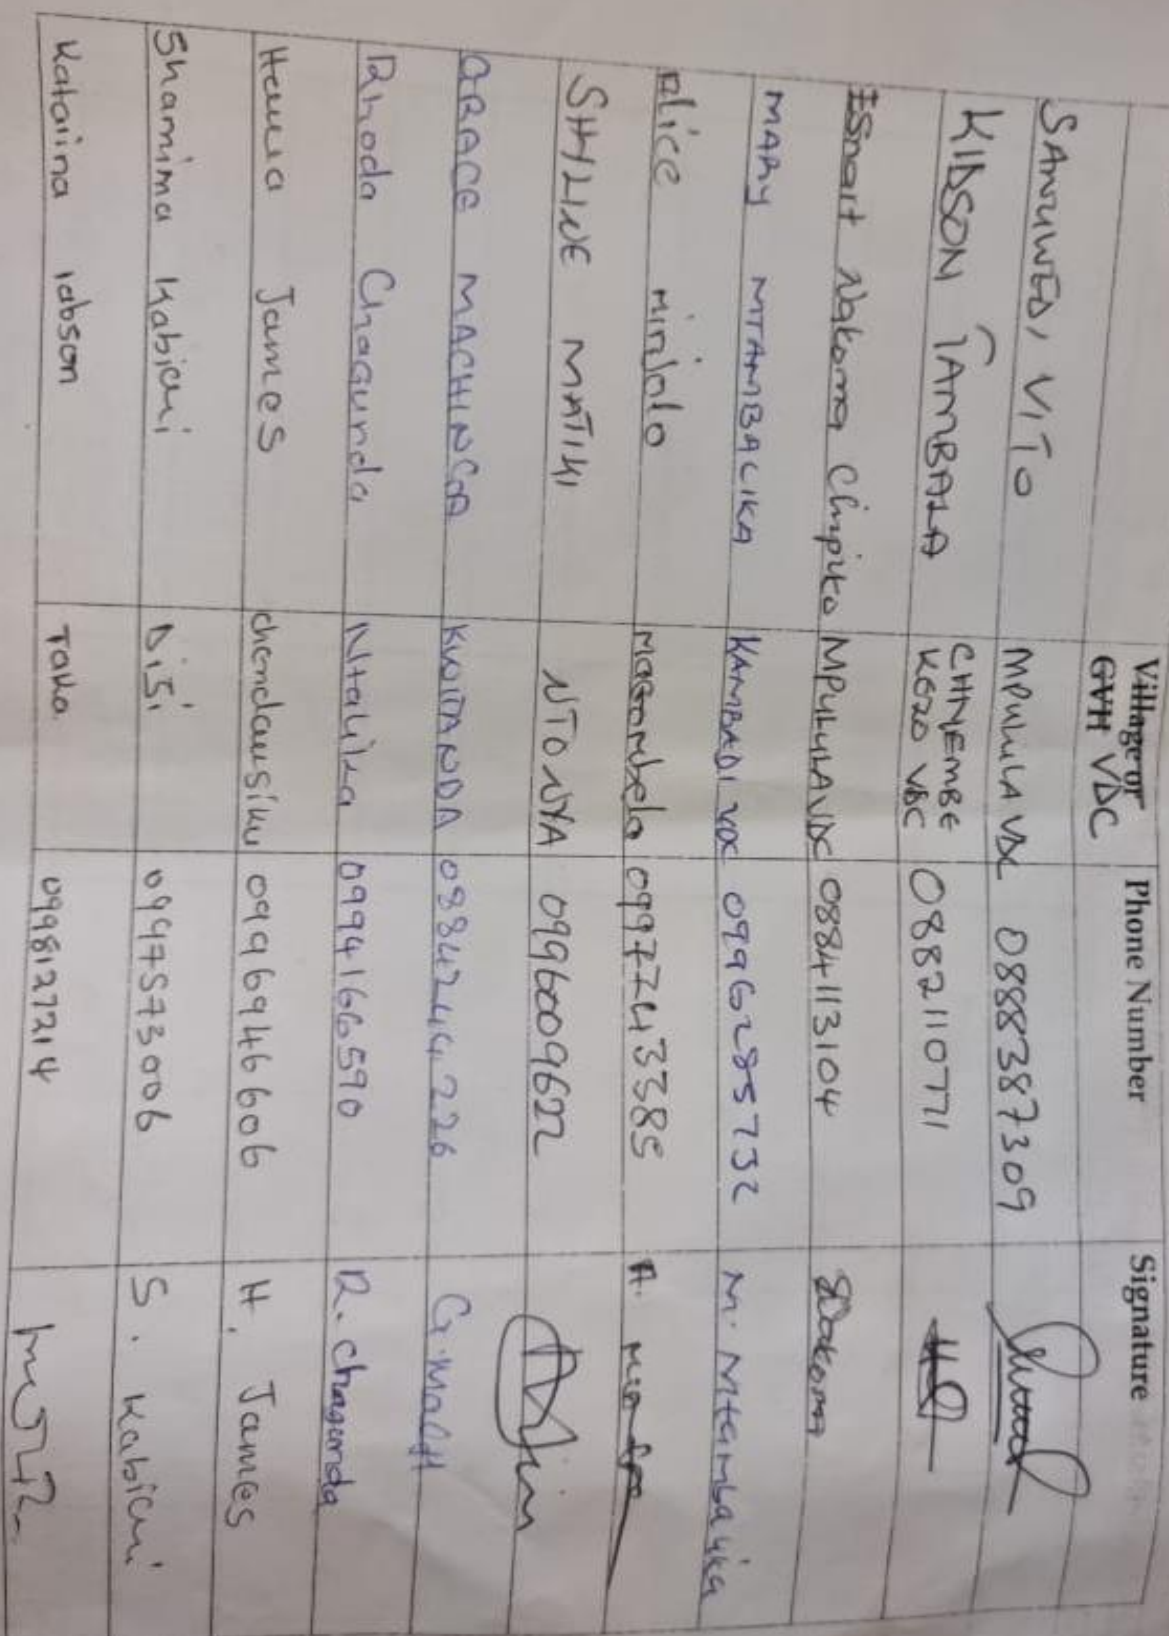 Village or GVH VDC Phone Number Signature
SANUWEO, VITO MPULULA VDC 0888387309
KIDSON TAMBALA CHIYEMBE KOZO VBC 0882110771
ESnart Nakoma Chipiko MPULULA VDC 0884113104 Nakoma
MARY MTAMBALIKA KAMBADI VDC 0996285732 M. Mtambalika
Alice Minjolo Magombela 0997743385 A.
SHYLINE MATIKI NTONYA 0996009622
GRACE MACHINGA KWITANDA 0884244226 G. Mach
Rhoda Chagunda Ntalika 0994166590 R. chagunda
James chendausiku 0996946606 H. James
Shamima Kabichi Disi 0997573006 S. Kabichi
Kataina Iabson Taka 0998127214